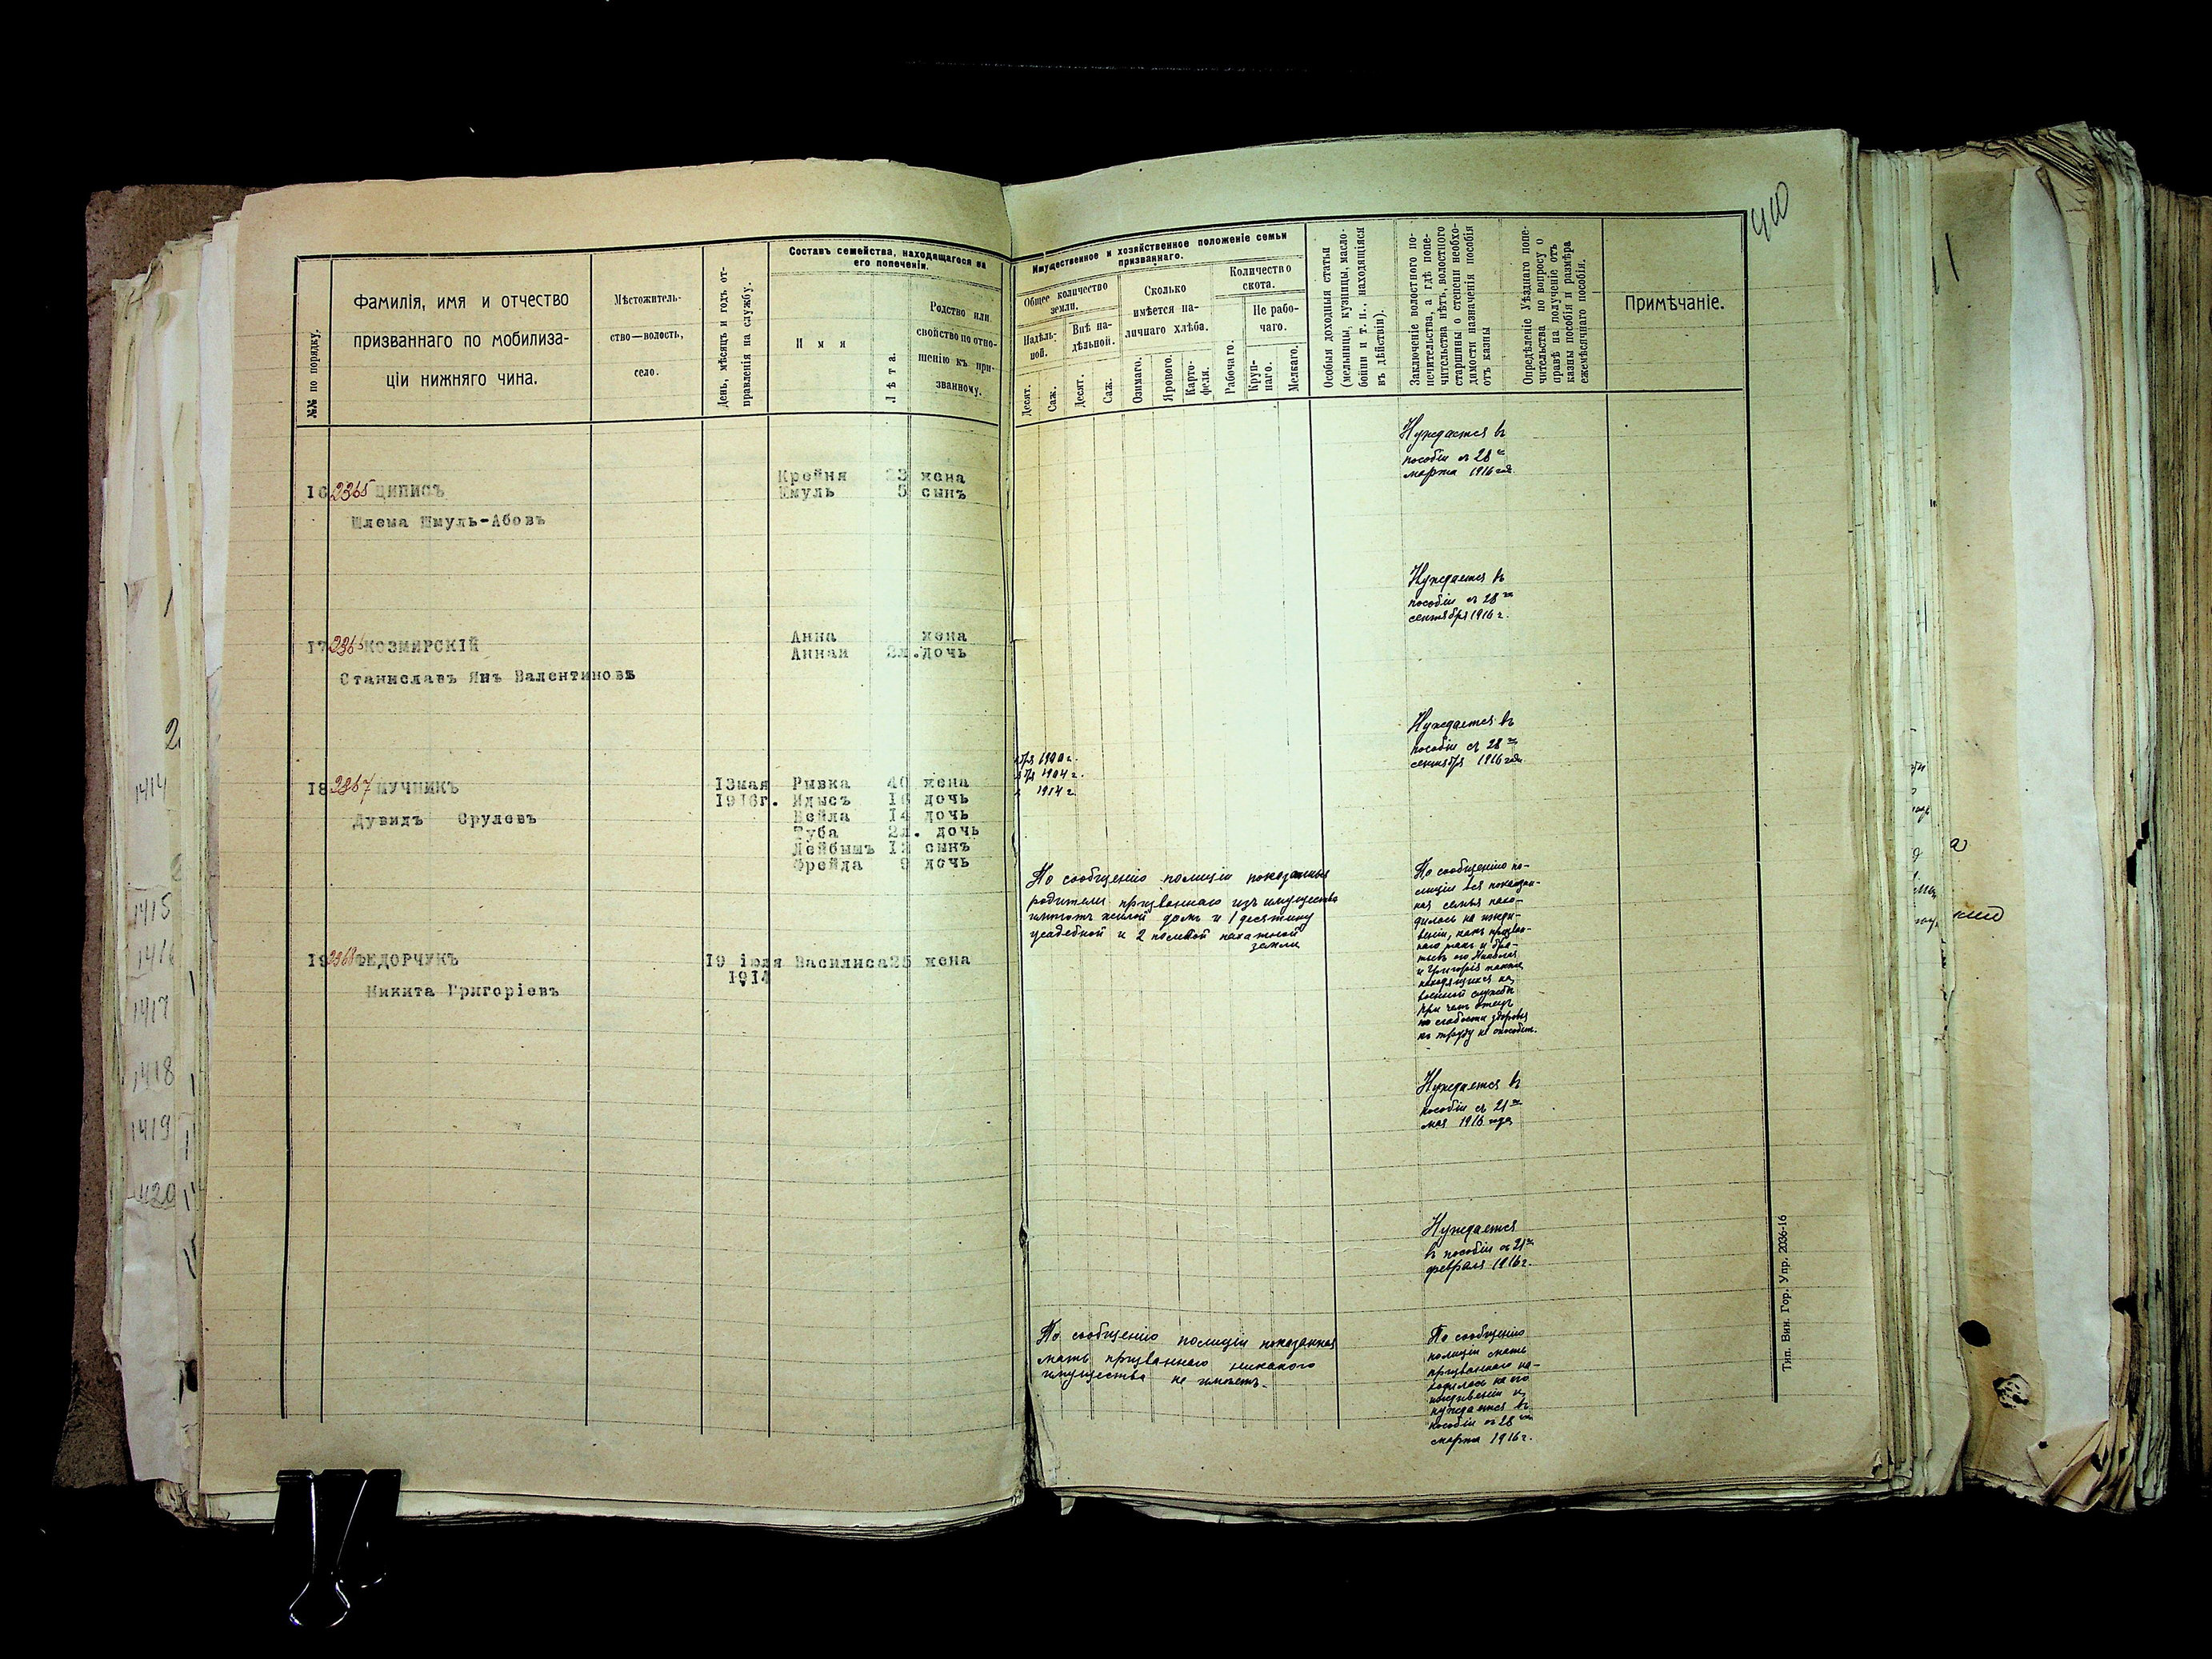 410
№№ по порядку.
Фамилія, имя и отчество
призваннаго по мобилиза-
ціи нижняго чина.
Мѣстожитель-
ство—волость,
село.
День, мѣсяцъ и годъ от-
правленія на службу.
Составъ семейства, находящагося на
его попеченіи.
Имя
Лѣта.
Родство или
свойство по отно-
шенію къ при-
званному.
Имущественное и хозяйственное положеніе семьи
призваннаго.
Общее количество
земли.
Надѣль-
ной.
Внѣ на-
дѣльной.
Десят.
Саж.
Десят.
Саж.
Сколько
имѣется на-
личнаго хлѣба.
Озимаго.
Ярового.
Карто-
феля.
Количество
скота.
Рабочаго.
Не рабо-
чаго.
Круп-
наго.
Мелкаго.
Особыя доходныя статьи
(мельницы, кузницы, масло-
бойни и т. п., находящіяся
въ дѣйствіи).
Заключеніе волостного по-
печительства, а гдѣ попе-
чительства нѣтъ, волостного
старшины о степени необхо-
димости назначенія пособія
отъ казны
Опредѣленіе Уѣзднаго попе-
чительства по вопросу о
правѣ на полученіе отъ
казны пособія и размѣра
ежемѣсячнаго пособія.
Примѣчаніе.
16 2365 ЦИПИСЪ
Шлема Шмуль-Абовъ
Крейня 23 жена
Шмуль 5 сынъ
17 КОЗМИРСКІЙ
Станиславъ Янъ Валентиновъ
Анна жена
Аннаи 2л. дочь
18 2367 МУЧНИКЪ
Дувидъ Срулевъ
13 мая
1916г.
Рывка 40 жена
Идысъ 16 дочь
Бейла 14 дочь
Туба 2л. дочь
Лейбышъ 12 сынъ
Фрейда 9 дочь
19 2368 ФЕДОРЧУКЪ
Никита Григоріевъ
19 іюля
1914
Василиса 25 жена
1900 г.
1904 г.
1914 г
По сообщенію полиціи показанные
родители призваннаго изъ имущества
имѣютъ жилой домъ и 1 десятину
усадебной и 2 полевой пахатной
земли
По сообщенію полиціи показанная
мать призваннаго никакого
имущества не имѣетъ.
Нуждается въ
пособіи съ 28
марта 1916 года
Нуждается въ
пособіи съ 28
сентября 1916 г.
Нуждается въ
пособіи съ 28
сентября 1916 года
По сообщенію по-
лиціи вся показан-
ная семья нахо-
дилась на ижди-
веніи, какъ призван-
наго такъ и бра-
тьевъ его
и Григорія также
находящихся на
военной службѣ
при чемъ отецъ
по слабости здоровья
къ труду не способенъ.
Нуждается въ
пособіи съ 21
мая 1916 года
Нуждается
въ пособіи съ 21
февраля 1916 г.
По сообщенію
полиціи мать
призваннаго на-
ходилась на его
иждивеніи и
нуждается въ
пособіи съ 28
марта 1916 г.
Тип. Вин. Гор. Упр. 2036-16
2
1414
1415
1416
1417
1418
1419
1420